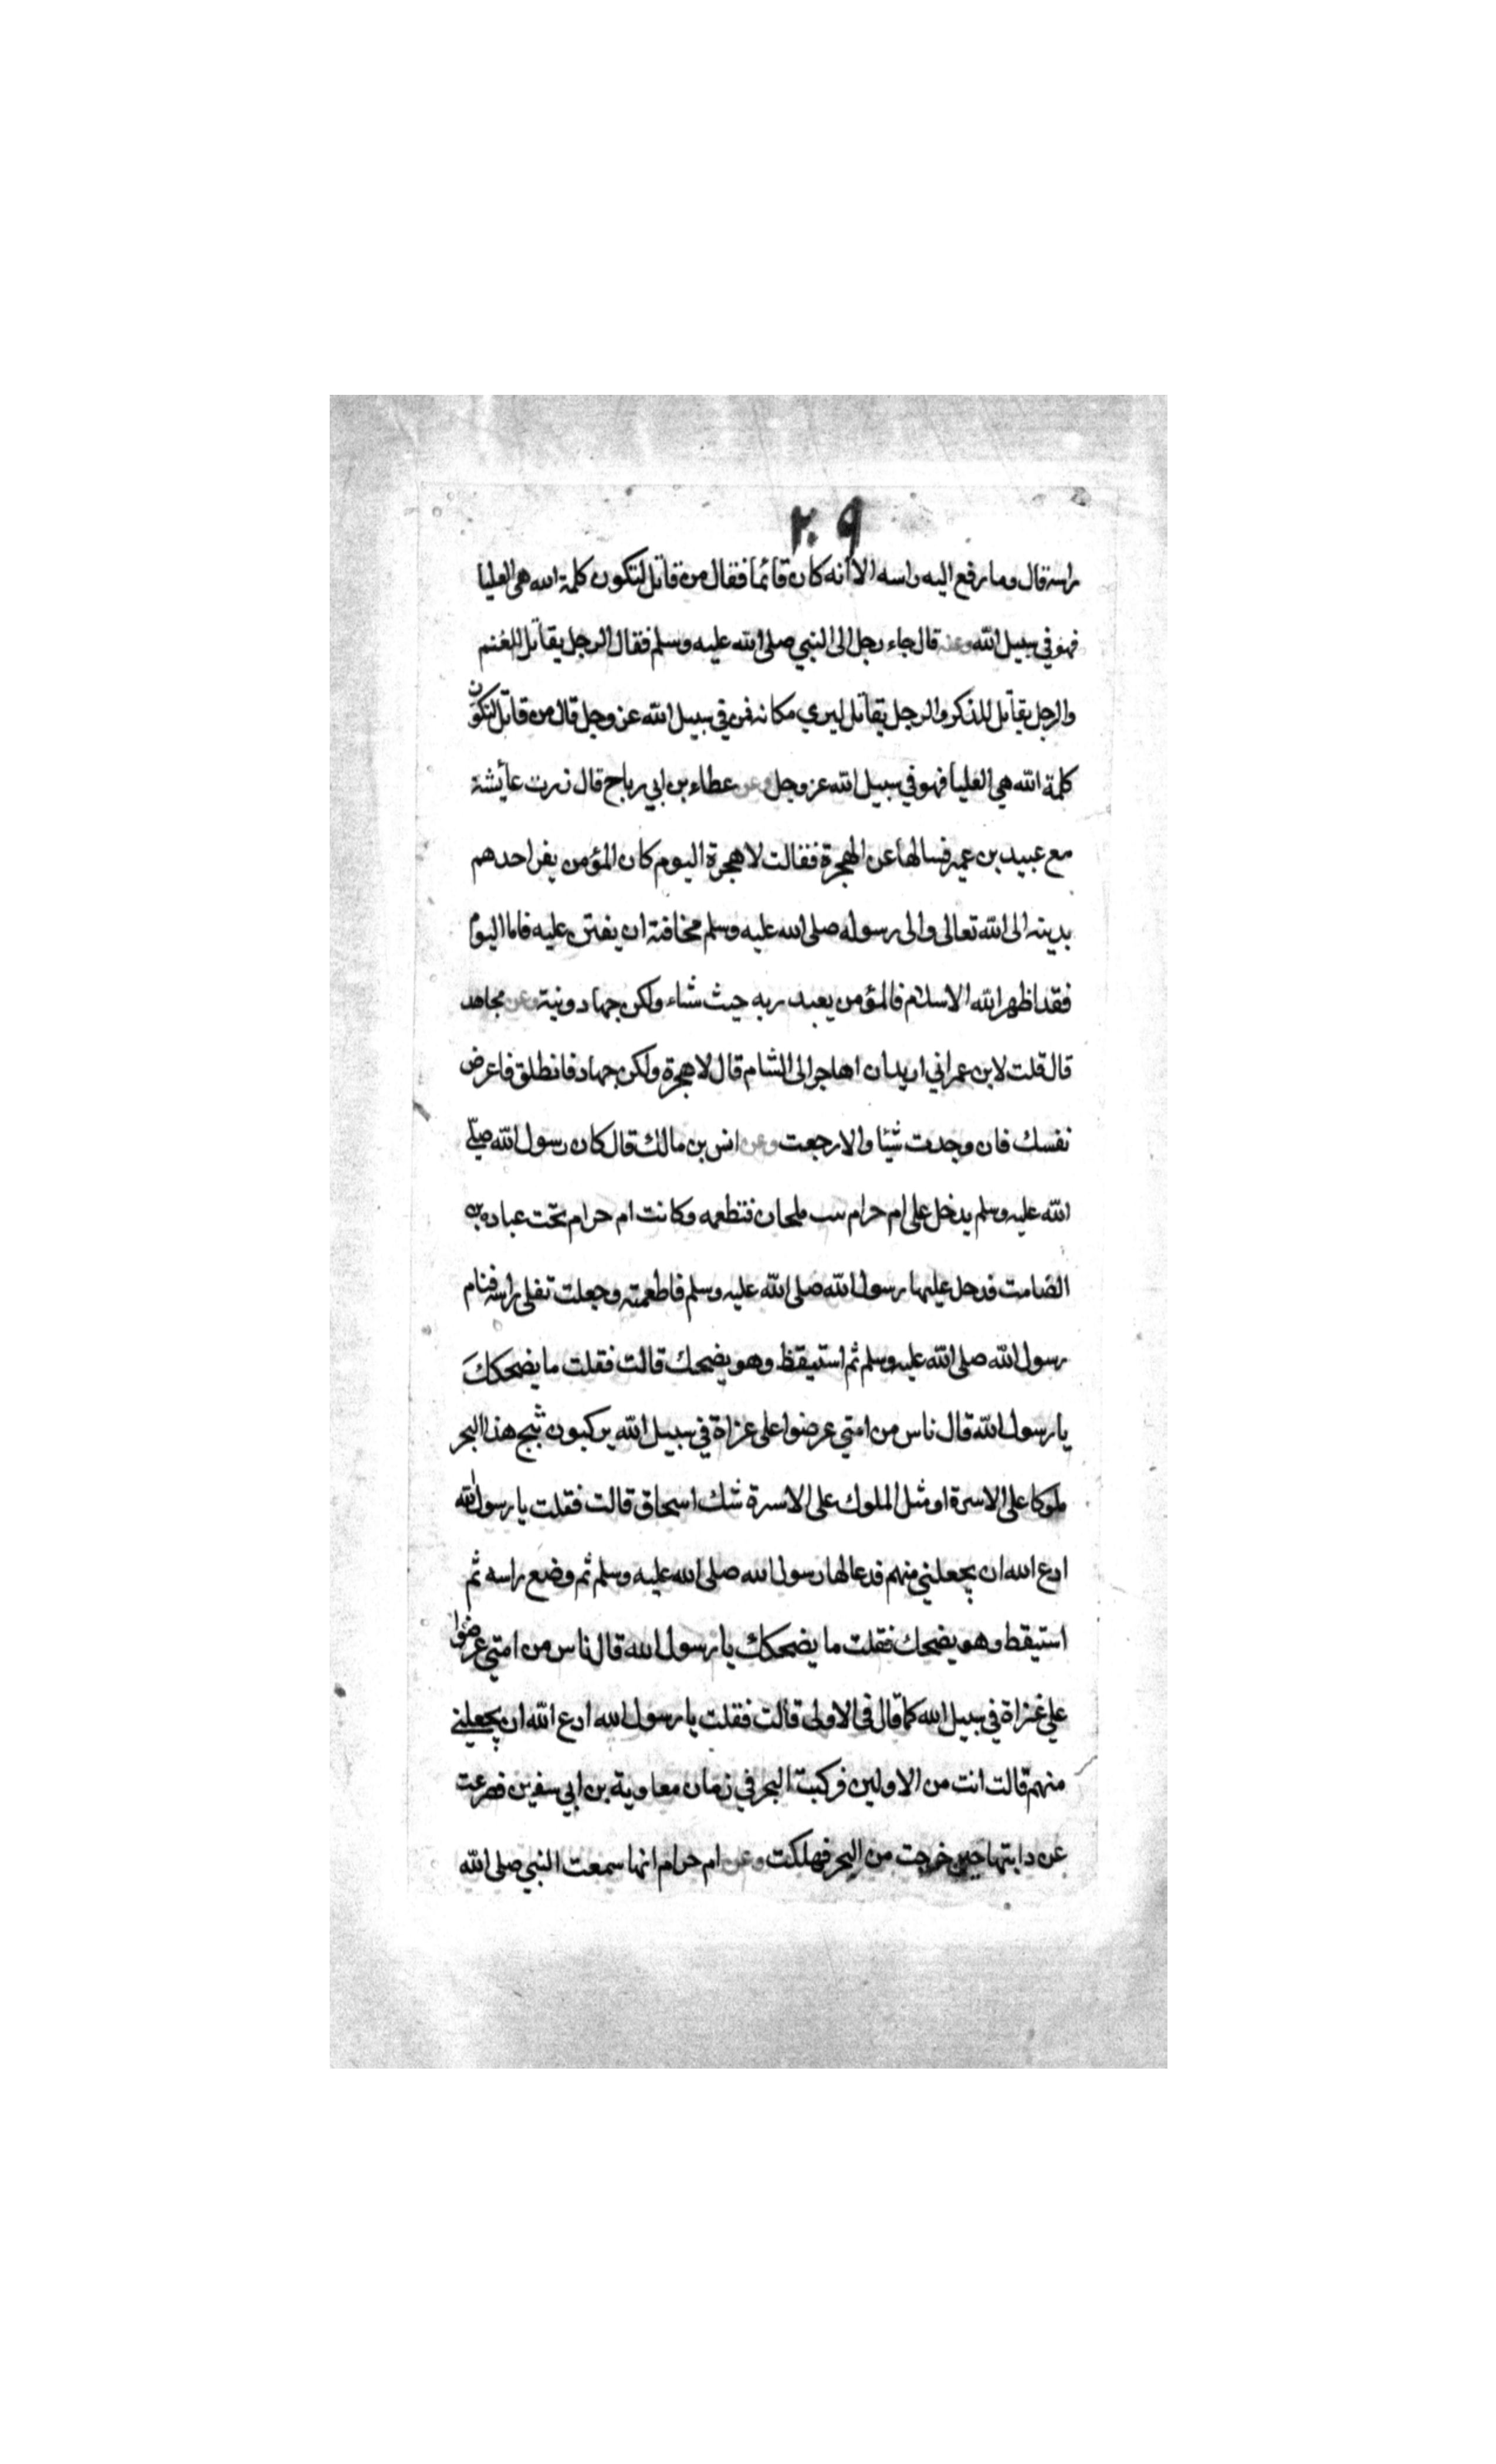 ٢٠٩
راسه قال وما رفع اليه راسه الا انه كان قائما فقال من قاتل لتكون كلمة الله هي العليا
فهو في سبيل الله وعنه قال جاء رجل الى النبي صلى الله عليه وسلم فقال الرجل يقاتل للمغنم
والرجل يقاتل للذكر والرجل يقاتل ليري مكانه فمن في سبيل الله عز وجل قال من قاتل لتكون
كلمة الله هي العليا فهو في سبيل الله عز وجل وعن عطاء بن ابي رباح قال زرت عائشة
مع عبيد بن عمير فسالها عن الهجرة فقالت لا هجرة اليوم كان المؤمن يفر احدهم
بدينه الى الله تعالى والى رسوله صلى الله عليه وسلم مخافة ان يفتن عليه فاما اليوم
فقد اظهر الله الاسلام فالمؤمن يعبد ربه حيث شاء ولكن جهاد ونية وعن مجاهد
قال قلت لابن عمر اني اريد ان اهاجر الى الشام قال لا هجرة ولكن جهاد فانطلق فاعرض
نفسك فان وجدت شيئا والا رجعت وعن انس بن مالك قال كان رسول الله صلى
الله عليه وسلم يدخل على ام حرام بنت ملحان فتطعمه وكانت ام حرام تحت عباده بن
الصامت فدخل عليها رسول الله صلى الله عليه وسلم فاطعمته وجعلت تفلي راسه فنام
رسول الله صلى الله عليه وسلم ثم استيقظ وهو يضحك قالت فقلت ما يضحكك
يا رسول الله قال ناس من امتي عرضوا على غزاة في سبيل الله يركبون ثبج هذا البحر
ملوكا على الاسرة او مثل الملوك على الاسرة شك اسحاق قالت فقلت يا رسول الله
ادع الله ان يجعلني منهم فدعا لها رسول الله صلى الله عليه وسلم ثم وضع راسه ثم
استيقظ وهو يضحك فقلت ما يضحكك يا رسول الله قال ناس من امتي عرضوا
علي غزاة في سبيل الله كما قال في الاولى قالت فقلت يا رسول الله ادع الله ان يجعلني
منهم قالت انت من الاولين فركبت البحر في زمان معاوية بن ابي سفين فصرعت
عن دابتها حين خرجت من البحر فهلكت وعن ام حرام انها سمعت النبي صلى الله